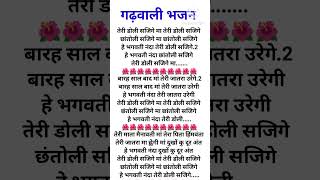 गढ़वाली भजन
तेरी डोली सजिगे मा तेरी डोली सजिगे
छांतोली सजिगे मां छांतोली सजिगे
हे भगवती नंदा तेरी डोली सजिगे.2
हे भगवती नंदा छांतोली सजिगे
तेरी डोली सजिगे मा.......
बारह साल बाद मां तेरी जातरा उरेगे.2
बारह साल बाद मां तेरी जातरा उरेगी
हे भगवती नंदा तेरी जातरा उरेगी
तेरी डोली सजिगे मां तेरी डोली सजिगे
छांतोली सजिगे मां छांतोली सजिगे
हे भगवती नंदा तेरी डोली.....
तेरी माता मैनावती मां तेरा पिता हिमवंता
तेरी जातरा मा ह्वेगी मां दुखों कू दूर अंत
हे भगवती नंदा मां दुखों कू दूर अंत
तेरी डोली सजिगे मां तेरी डोली सजिगे
छंतोली सजिगे मां छांतोली सजिगे
हे भगवती नंदा तेरी डोली सजिगे.....